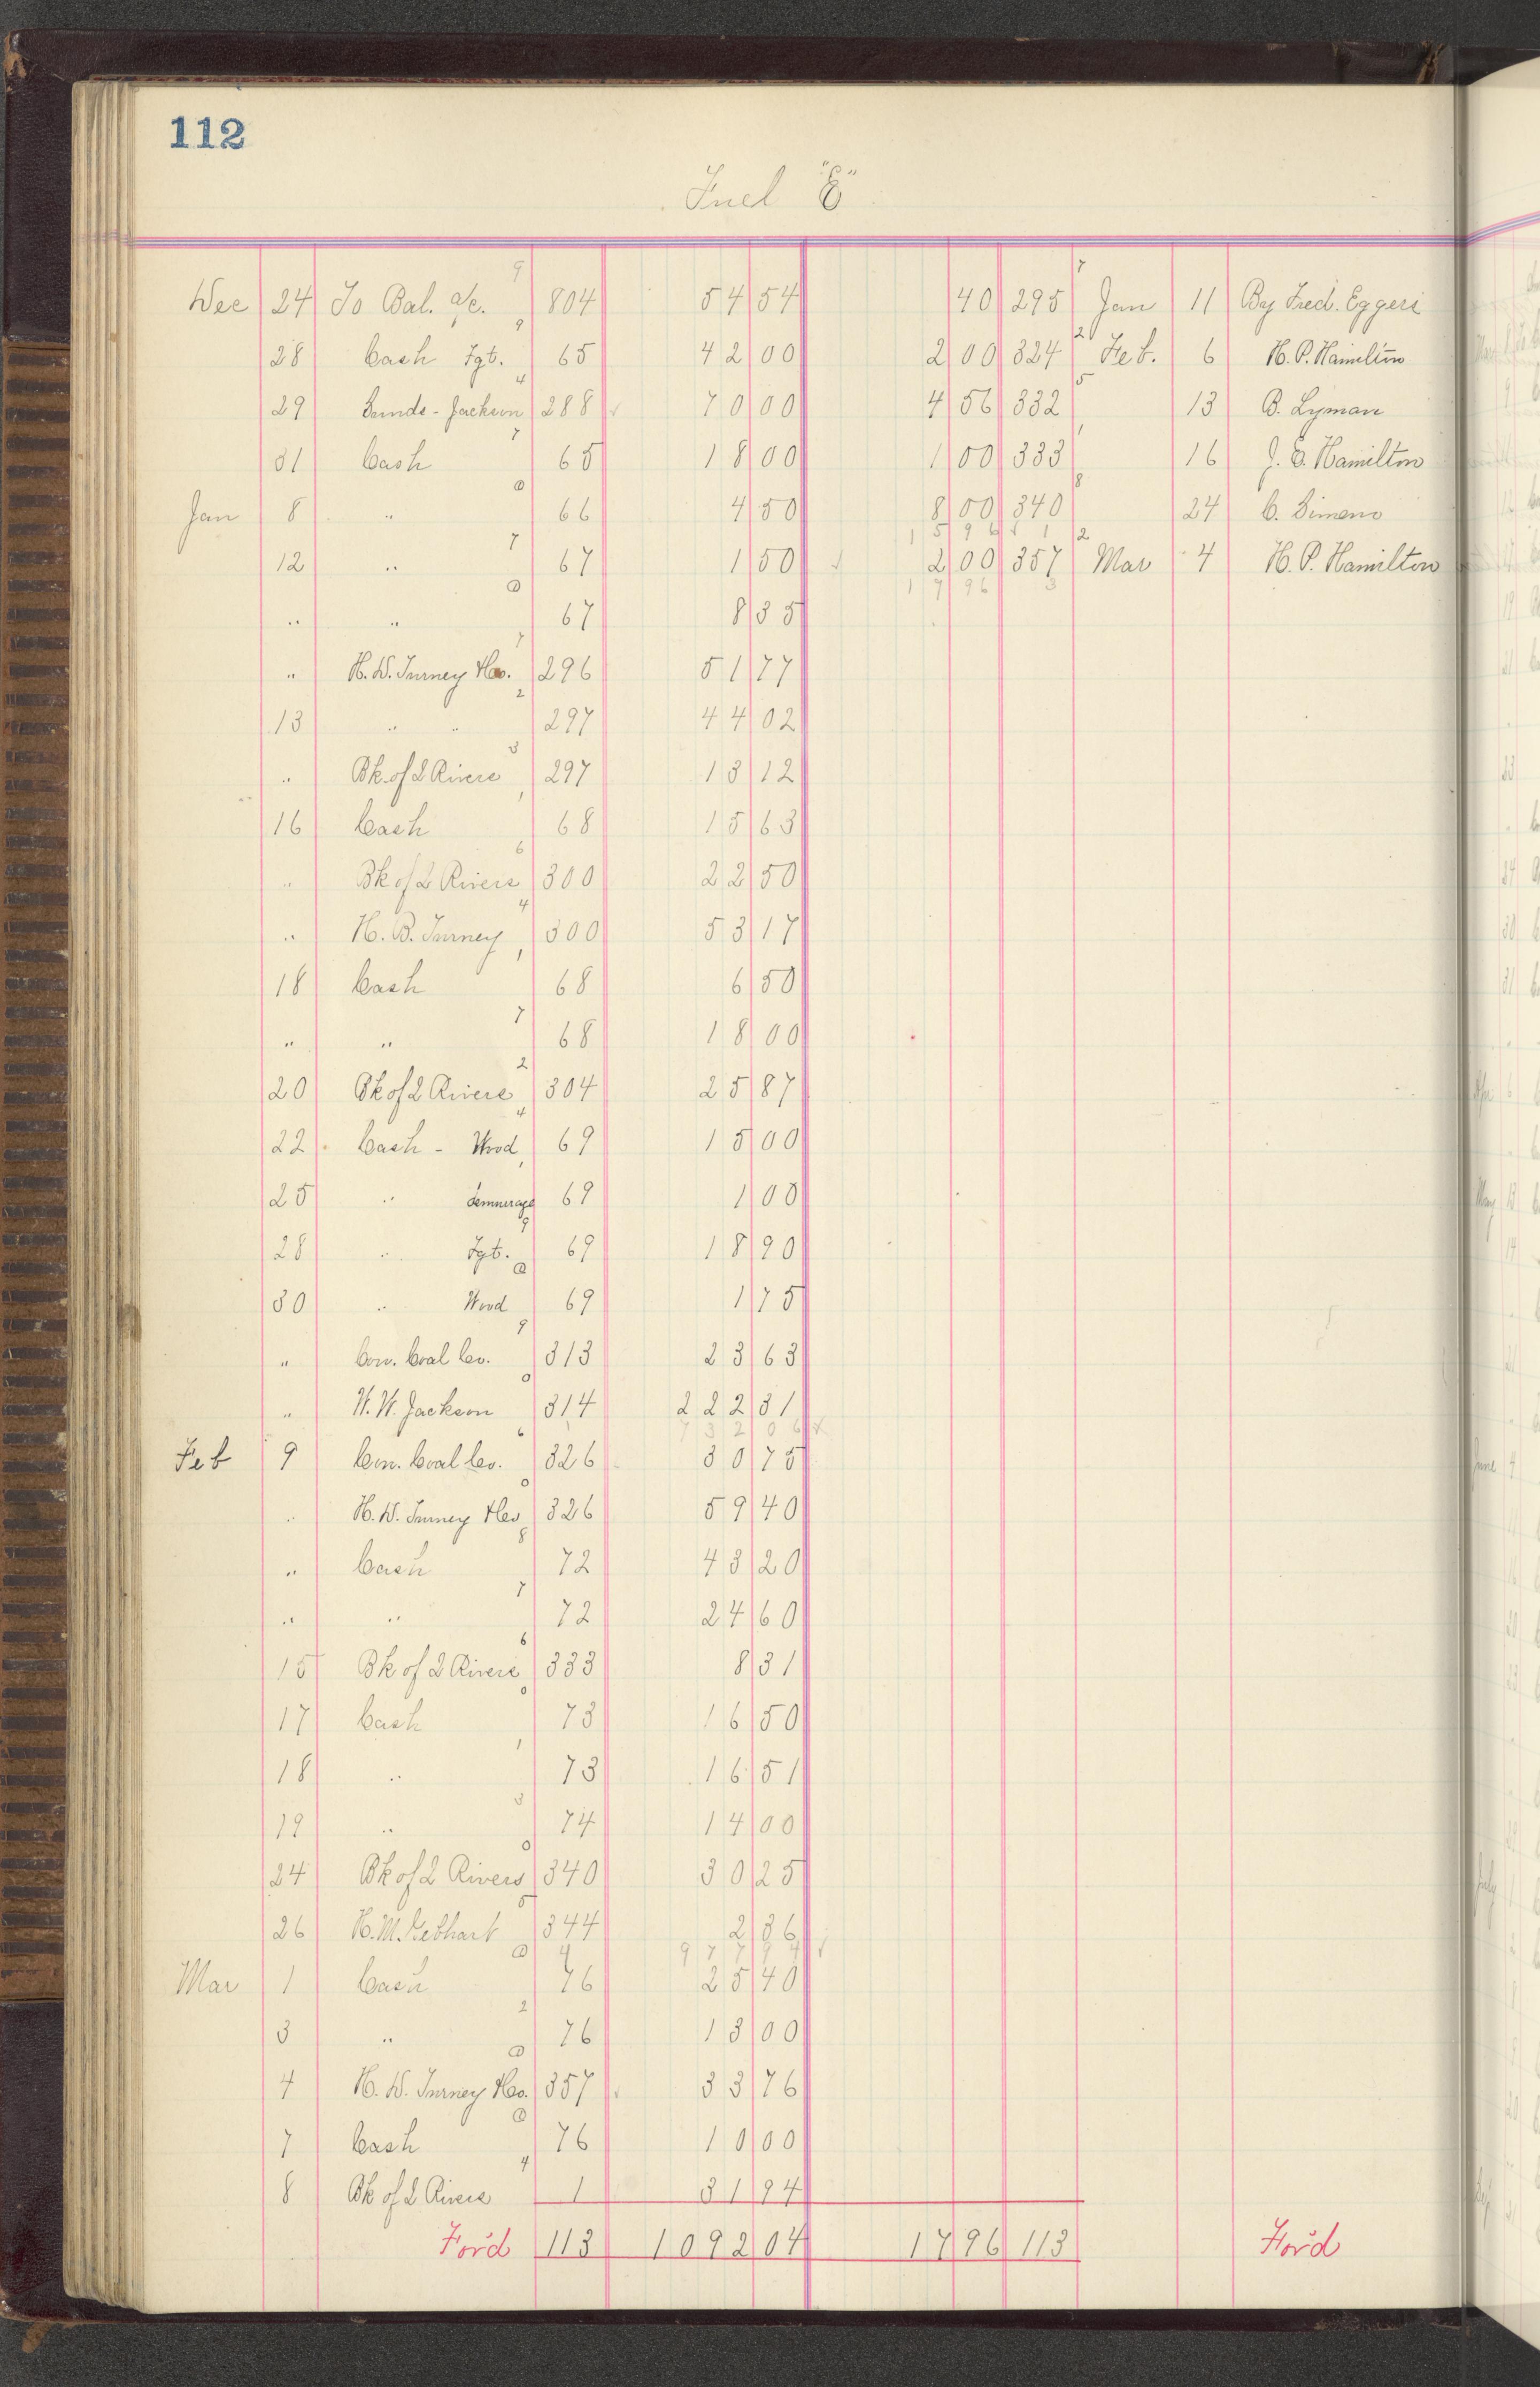 112
Fuel "E"
Dec 24 To Bal. a/c. 9 804 54 54 40 295 7 Jan 11 By Fred. Eggers
28 Cash Fgt. 9 65 42 00 2 00 324 2 Feb. 6 H. P. Hamilton
29 Sunds - Jackson 4 288 √ 70 00 4 56 332 5 13 B. Lyman
31 Cash 7 65 18 00 1 00 333 1 16 J. E. Hamilton
Jan 8 " 66 4 50 8 00 340 8 24 C. Simens
15 96
12 " 7 67 1 50 √ 2 00 357 2 Mar 4 H. P. Hamilton
17 96
" " 67 8 35
" H. W. Turney & Co. 7 296 51 77
13 " " 2 297 44 02
" Bk. of 2 Rivers 3 297 13 12
16 Cash 1 68 15 63
" Bk of 2 Rivers 6 300 22 50
" H. B. Turney 4 300 53 17
18 Cash 1 68 6 50
" " 7 68 18 00
20 Bk of 2 Rivers 2 304 25 87
22 Cash - Wood 4 69 15 00
25 " demurage 1 69 1 00
28 " Fgt. 9 69 18 90
30 " Wood 69 1 75
" Con. Coal Co. 9 313 23 63
" W. W. Jackson 0 314 222 31
732 06 √
Feb 9 Con. Coal Co. 6 326 30 75
" H. W. Turney & Co 0 326 59 40
" Cash 8 72 43 20
" " 7 72 24 60
15 Bk of 2 Rivers 6 333 8 31
17 Cash 0 73 16 50
18 " 1 73 16 51
19 " 3 74 14 00
24 Bk of 2 Rivers 0 340 30 25
26 H. M. Gebhart 5 344 2 36
977 94 √
Mar 1 Cash 76 25 40
3 " 2 76 13 00
4 H. W. Turney & Co. 357 √ 33 76
7 Cash 76 10 00
8 Bk of 2 Rivers 4 1 31 94
For'd 113 1092 04 17 96 113 For'd